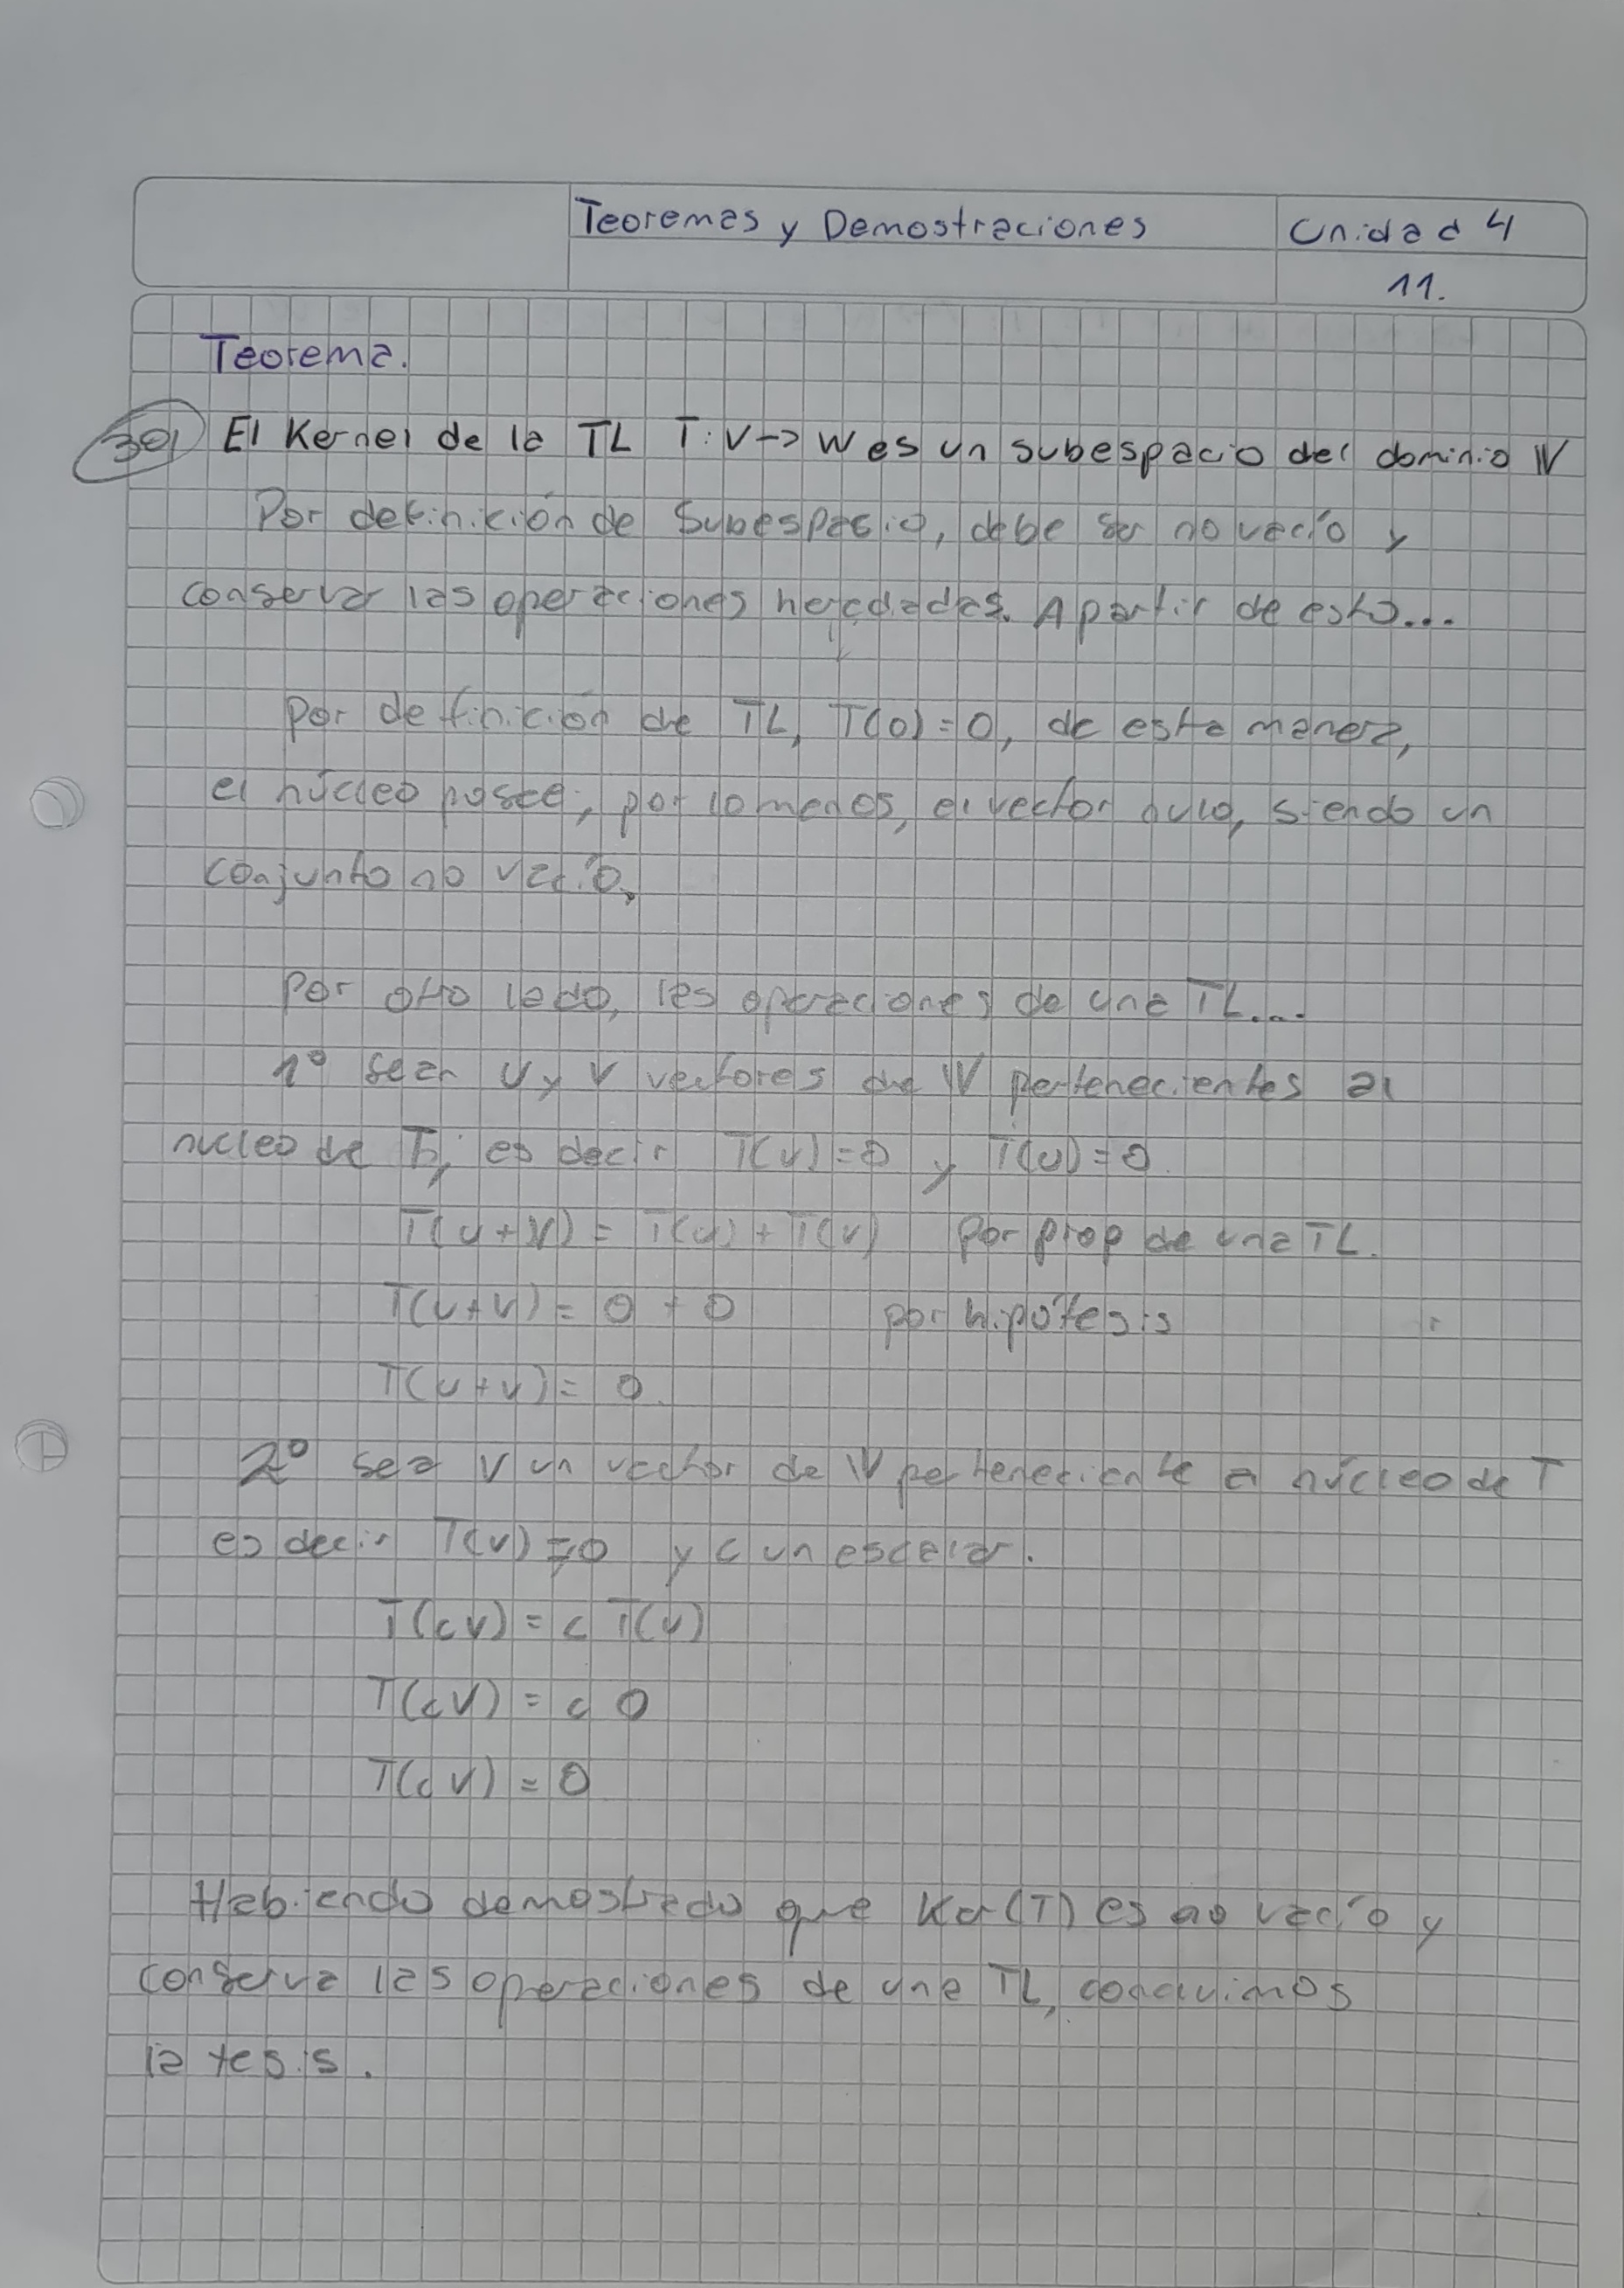 Teoremas y Demostraciones
Unidad 4
11.
Teorema.
30) El Kernel de la TL T: V -> W es un subespacio del dominio V
Por definición de subespacio, debe ser no vacío y
conservar las operaciones heredadas. A partir de esto...
Por definición de TL, T(0) = 0, de esta manera,
el núcleo posee, por lo menos, el vector nulo, siendo un
conjunto no vacío.
Por otro lado, las operaciones de una TL....
1° sean u y v vectores de V pertenecientes al
nucleo de T, es decir T(v) = 0 y T(u) = 0.
T(u+v) = T(u) + T(v) por prop de una TL.
T(u+v) = 0 + 0 por hipótesis
T(u+v) = 0.
2° sea v un vector de V perteneciente al núcleo de T
es decir T(v) = 0 y c un escalar.
T(cv) = c T(v)
T(cv) = c 0
T(cv) = 0
Habiendo demostrado que Ker(T) es no vacío y
conserva las operaciones de una TL, concluimos
la tesis.